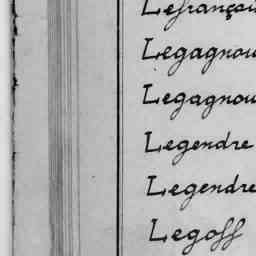 Lefrançoi
Legagnou
Legagnou
Legendre
Legendre
Legoff